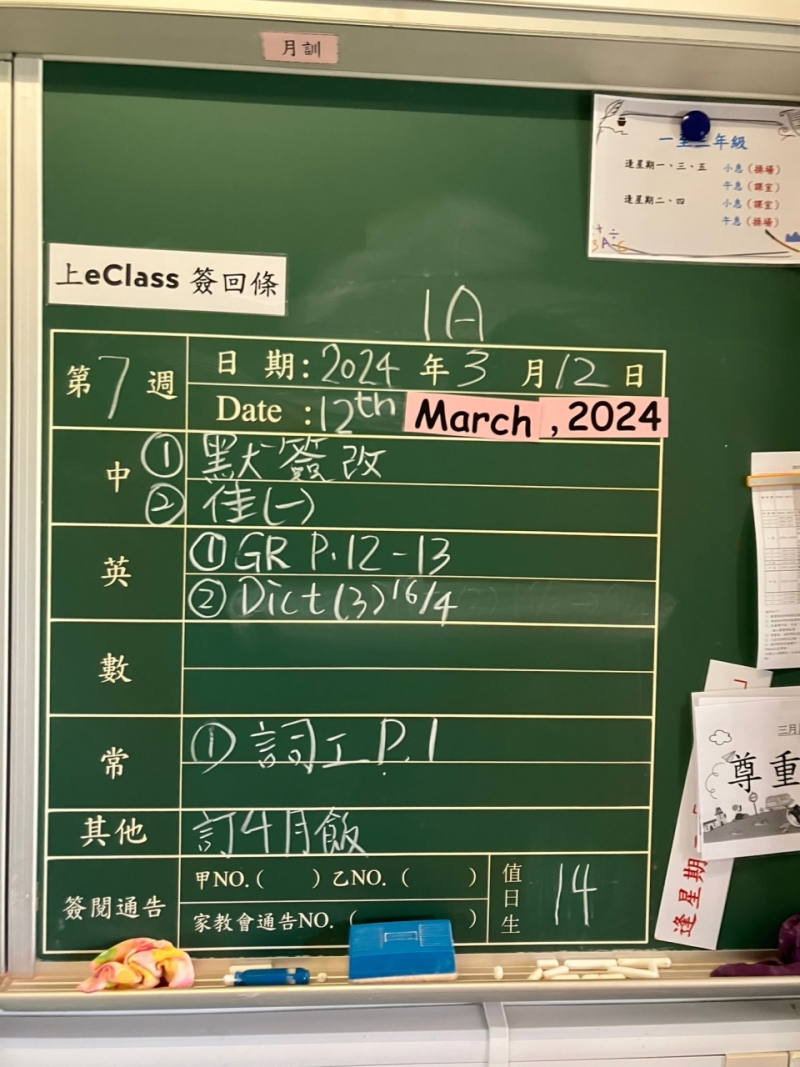 月訓
一至三年級
逢星期一、三、五 小息(操場)
午息(課室)
逢星期二、四 小息(課室)
午息(操場)
上eClass 簽回條
1A
第7週 日期:2024年3月12日
Date :12th March , 2024
中 ① 默簽改
② 佳(一)
英 ① GR P.12-13
② Dict(3) 16/4
數
常 ① 詞工 P.1
其他 訂4月飯
簽閱通告 甲NO.( ) 乙NO. ( )
家教會通告NO. ( )
值日生 14
三月
尊重
逢星期二